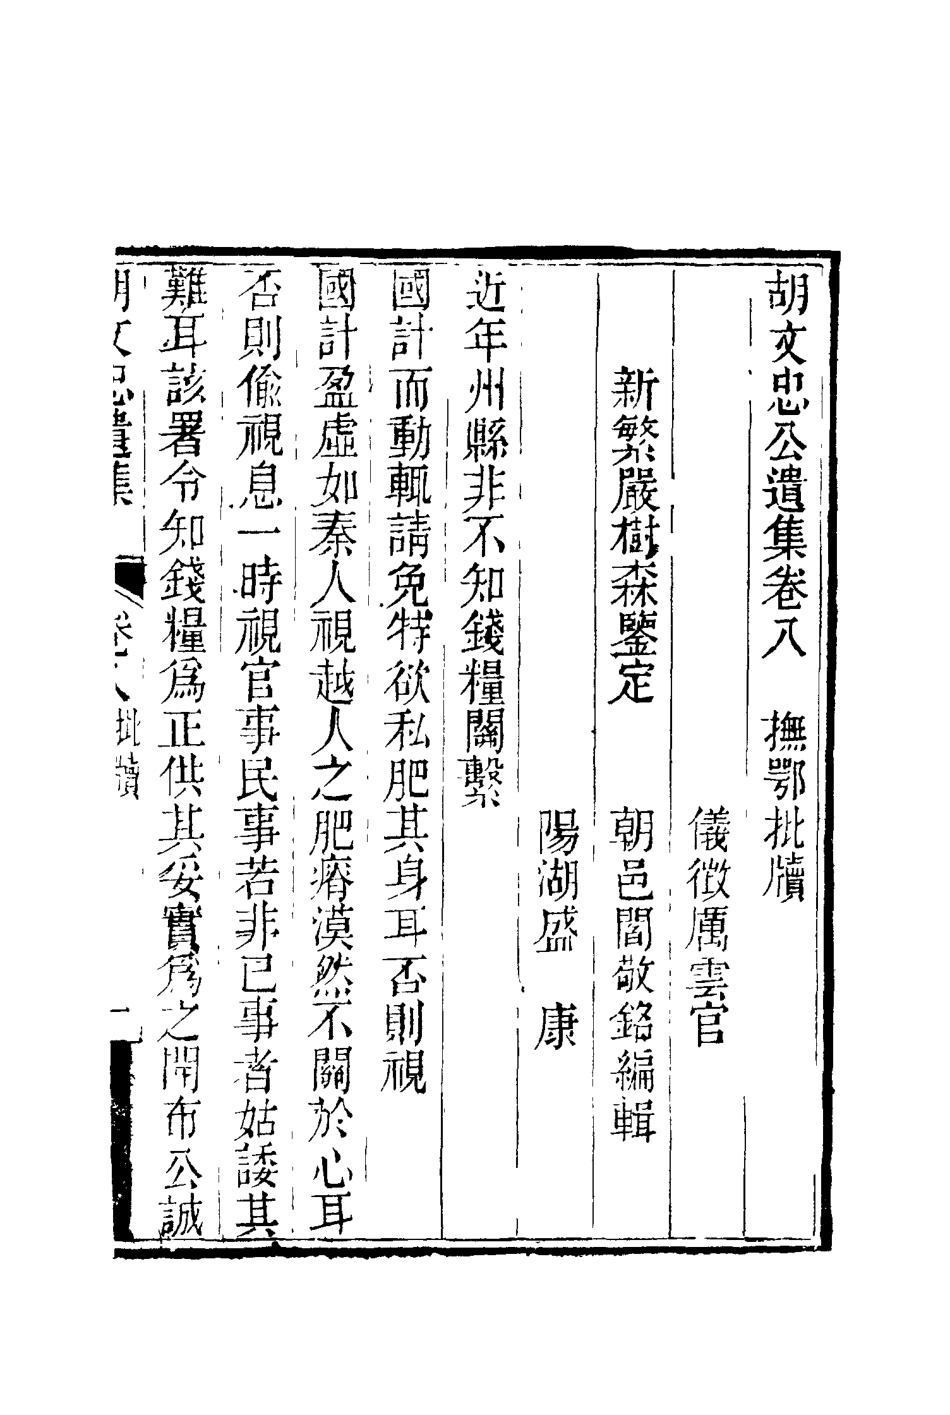 胡文忠公遺集卷八　撫鄂批牘
儀徵厲雲官
新繁嚴樹森鑒定　朝邑閻敬銘編輯
陽湖盛　康
近年州縣非不知錢糧關繫
國計而動輒請免特欲私肥其身耳否則視
國計盈虛如秦人視越人之肥瘠漠然不關於心耳
否則偷視息一時視官事民事若非已事者姑諉其
難耳該署令知錢糧爲正供其妥實爲之開布公誠
胡文忠遺集　卷八批牘　一